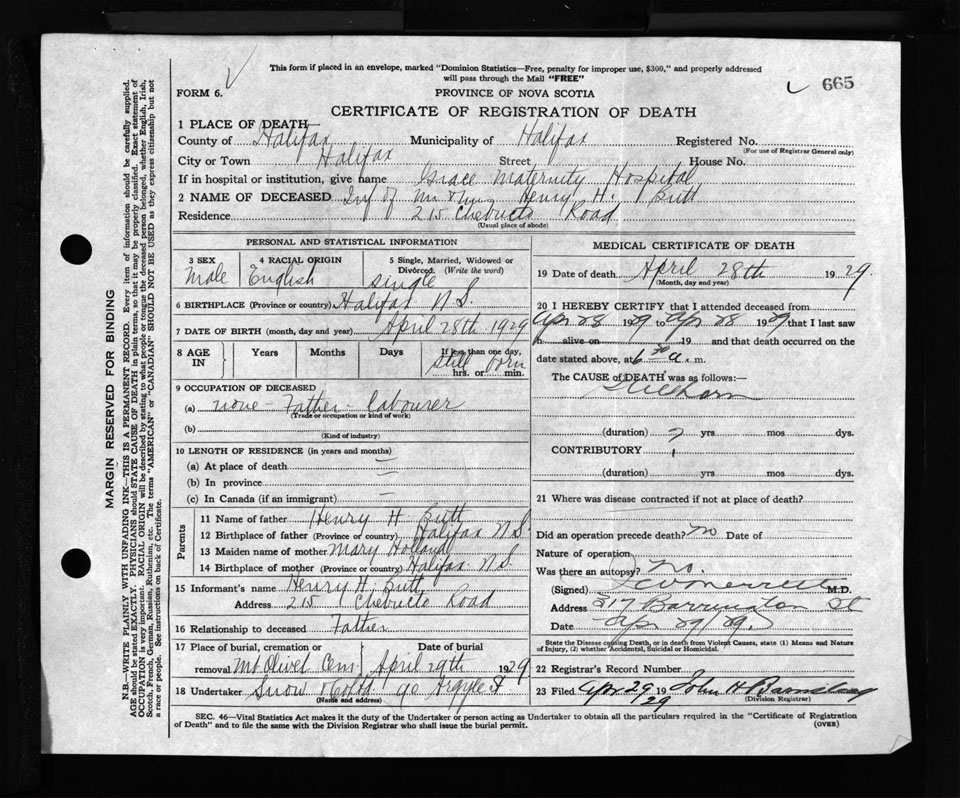 This form if placed in an envelope, marked "Dominion Statistics—Free, penalty for improper use, $300," and properly addressed
will pass through the Mail "FREE"
665
FORM 6.
PROVINCE OF NOVA SCOTIA
CERTIFICATE OF REGISTRATION OF DEATH
1 PLACE OF DEATH
County of Halifax Municipality of Halifax Registered No.
(For use of Registrar General only)
City or Town Halifax Street House No.
If in hospital or institution, give name Grace Maternity Hospital
2 NAME OF DECEASED Inf of Mr & Mrs Henry H. Butt
Residence 215 Chebucto Road
(Usual place of abode)
PERSONAL AND STATISTICAL INFORMATION
3 SEX 4 RACIAL ORIGIN 5 Single, Married, Widowed or
Divorced. (Write the word)
Male English Single
6 BIRTHPLACE (Province or country) Halifax N.S.
7 DATE OF BIRTH (month, day and year) April 28th 1929
8 AGE IN Years Months Days If less than one day,
still born
hrs. or min.
9 OCCUPATION OF DECEASED
(a) none - Father - labourer
(Trade or occupation or kind of work)
(b)
(Kind of industry)
10 LENGTH OF RESIDENCE (in years and months)
(a) At place of death —
(b) In province —
(c) In Canada (if an immigrant) —
Parents
11 Name of father Henry H. Butt
12 Birthplace of father (Province or country) Halifax N.S.
13 Maiden name of mother Mary Holland
14 Birthplace of mother (Province or country) Halifax N.S.
15 Informant's name Henry H. Butt
Address 215 Chebucto Road
16 Relationship to deceased Father
17 Place of burial, cremation or Date of burial
removal Mt Olivet Cem. April 29th 1929
18 Undertaker Snow & Co Ltd 90 Argyle St
(Name and address)
MEDICAL CERTIFICATE OF DEATH
19 Date of death April 28th 1929.
(Month, day and year)
20 I HEREBY CERTIFY that I attended deceased from
Apr 28 1929 to Apr 28 1929 that I last saw
h alive on 19 and that death occurred on the
date stated above, at 6 a. m.
The CAUSE of DEATH was as follows:—
Stillborn
(duration) ? yrs mos dys.
CONTRIBUTORY
(duration) yrs mos dys.
21 Where was disease contracted if not at place of death?
Did an operation precede death? No Date of
Nature of operation
Was there an autopsy? No.
(Signed) M.D.
Address 317 Barrington St
Date Apr 29/29
State the Disease causing Death, or in death from Violent Causes, state (1) Means and Nature
of Injury, (2) whether Accidental, Suicidal or Homicidal.
22 Registrar's Record Number
23 Filed Apr 29 19 29 John H
(Division Registrar)
SEC. 46—Vital Statistics Act makes it the duty of the Undertaker or person acting as Undertaker to obtain all the particulars required in the "Certificate of Registration
of Death" and to file the same with the Division Registrar who shall issue the burial permit.
(OVER)
MARGIN RESERVED FOR BINDING
N.B.—WRITE PLAINLY WITH UNFADING INK—THIS IS A PERMANENT RECORD. Every item of information should be carefully supplied.
AGE should be stated EXACTLY. PHYSICIANS should STATE CAUSE OF DEATH in plain terms, so that it may be properly classified. Exact statement of
OCCUPATION is very important. RACIAL ORIGIN will be described by stating to what people or tongue the deceased person belonged, whether English, Irish,
Scotch, French, German, Russian, Ruthenian, etc. The terms "AMERICAN" or "CANADIAN" SHOULD NOT BE USED as they express citizenship but not
a race or people. See instructions on back of Certificate.